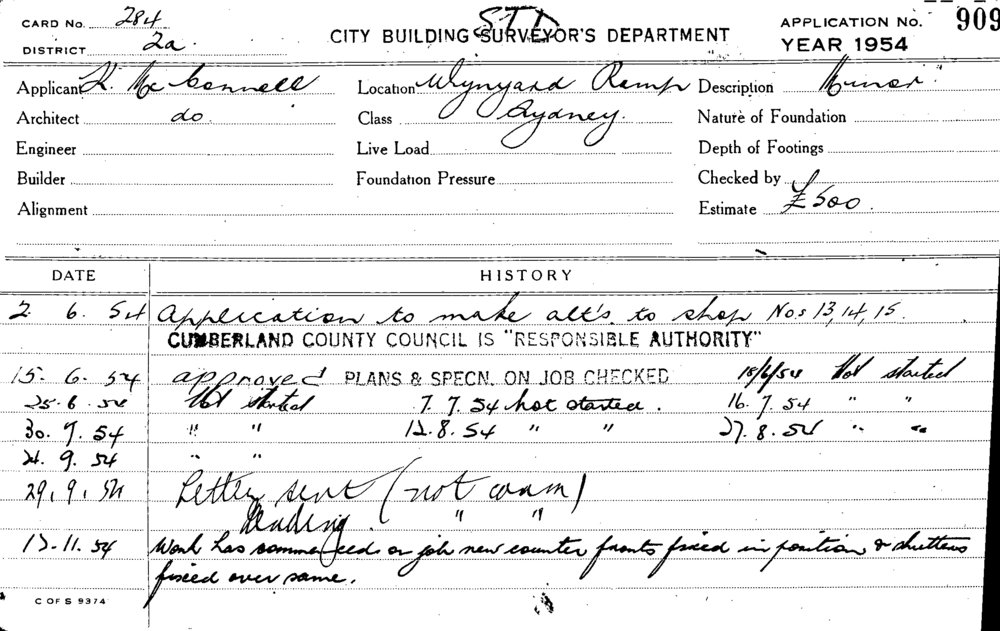 CARD No. 284 STD APPLICATION No. 909
DISTRICT 2a. CITY BUILDING SURVEYOR'S DEPARTMENT YEAR 1954
Applicant K. McConnell Location Wynyard Ramp Description Minor
Architect do. Class Sydney. Nature of Foundation
Engineer Live Load Depth of Footings
Builder Foundation Pressure Checked by
Alignment Estimate £500.
DATE HISTORY
2. 6. 54 Application to make alt's. to shop Nos 13, 14, 15.
CUMBERLAND COUNTY COUNCIL IS "RESPONSIBLE AUTHORITY"
15. 6. 54 approved PLANS & SPECN. ON JOB CHECKED 18/6/54 Not started
25. 6. 54 Not started 7. 7. 54 not started. 16. 7. 54 " "
30. 7. 54 " " 12. 8. 54 " " 27. 8. 54 " "
21. 9. 54 " "
29. 9. 54 Letter sent (not comm)
Pending " "
12. 11. 54 Work has commenced on job new counter fronts fixed in position & shutters
fixed over same.
C OF S 9374